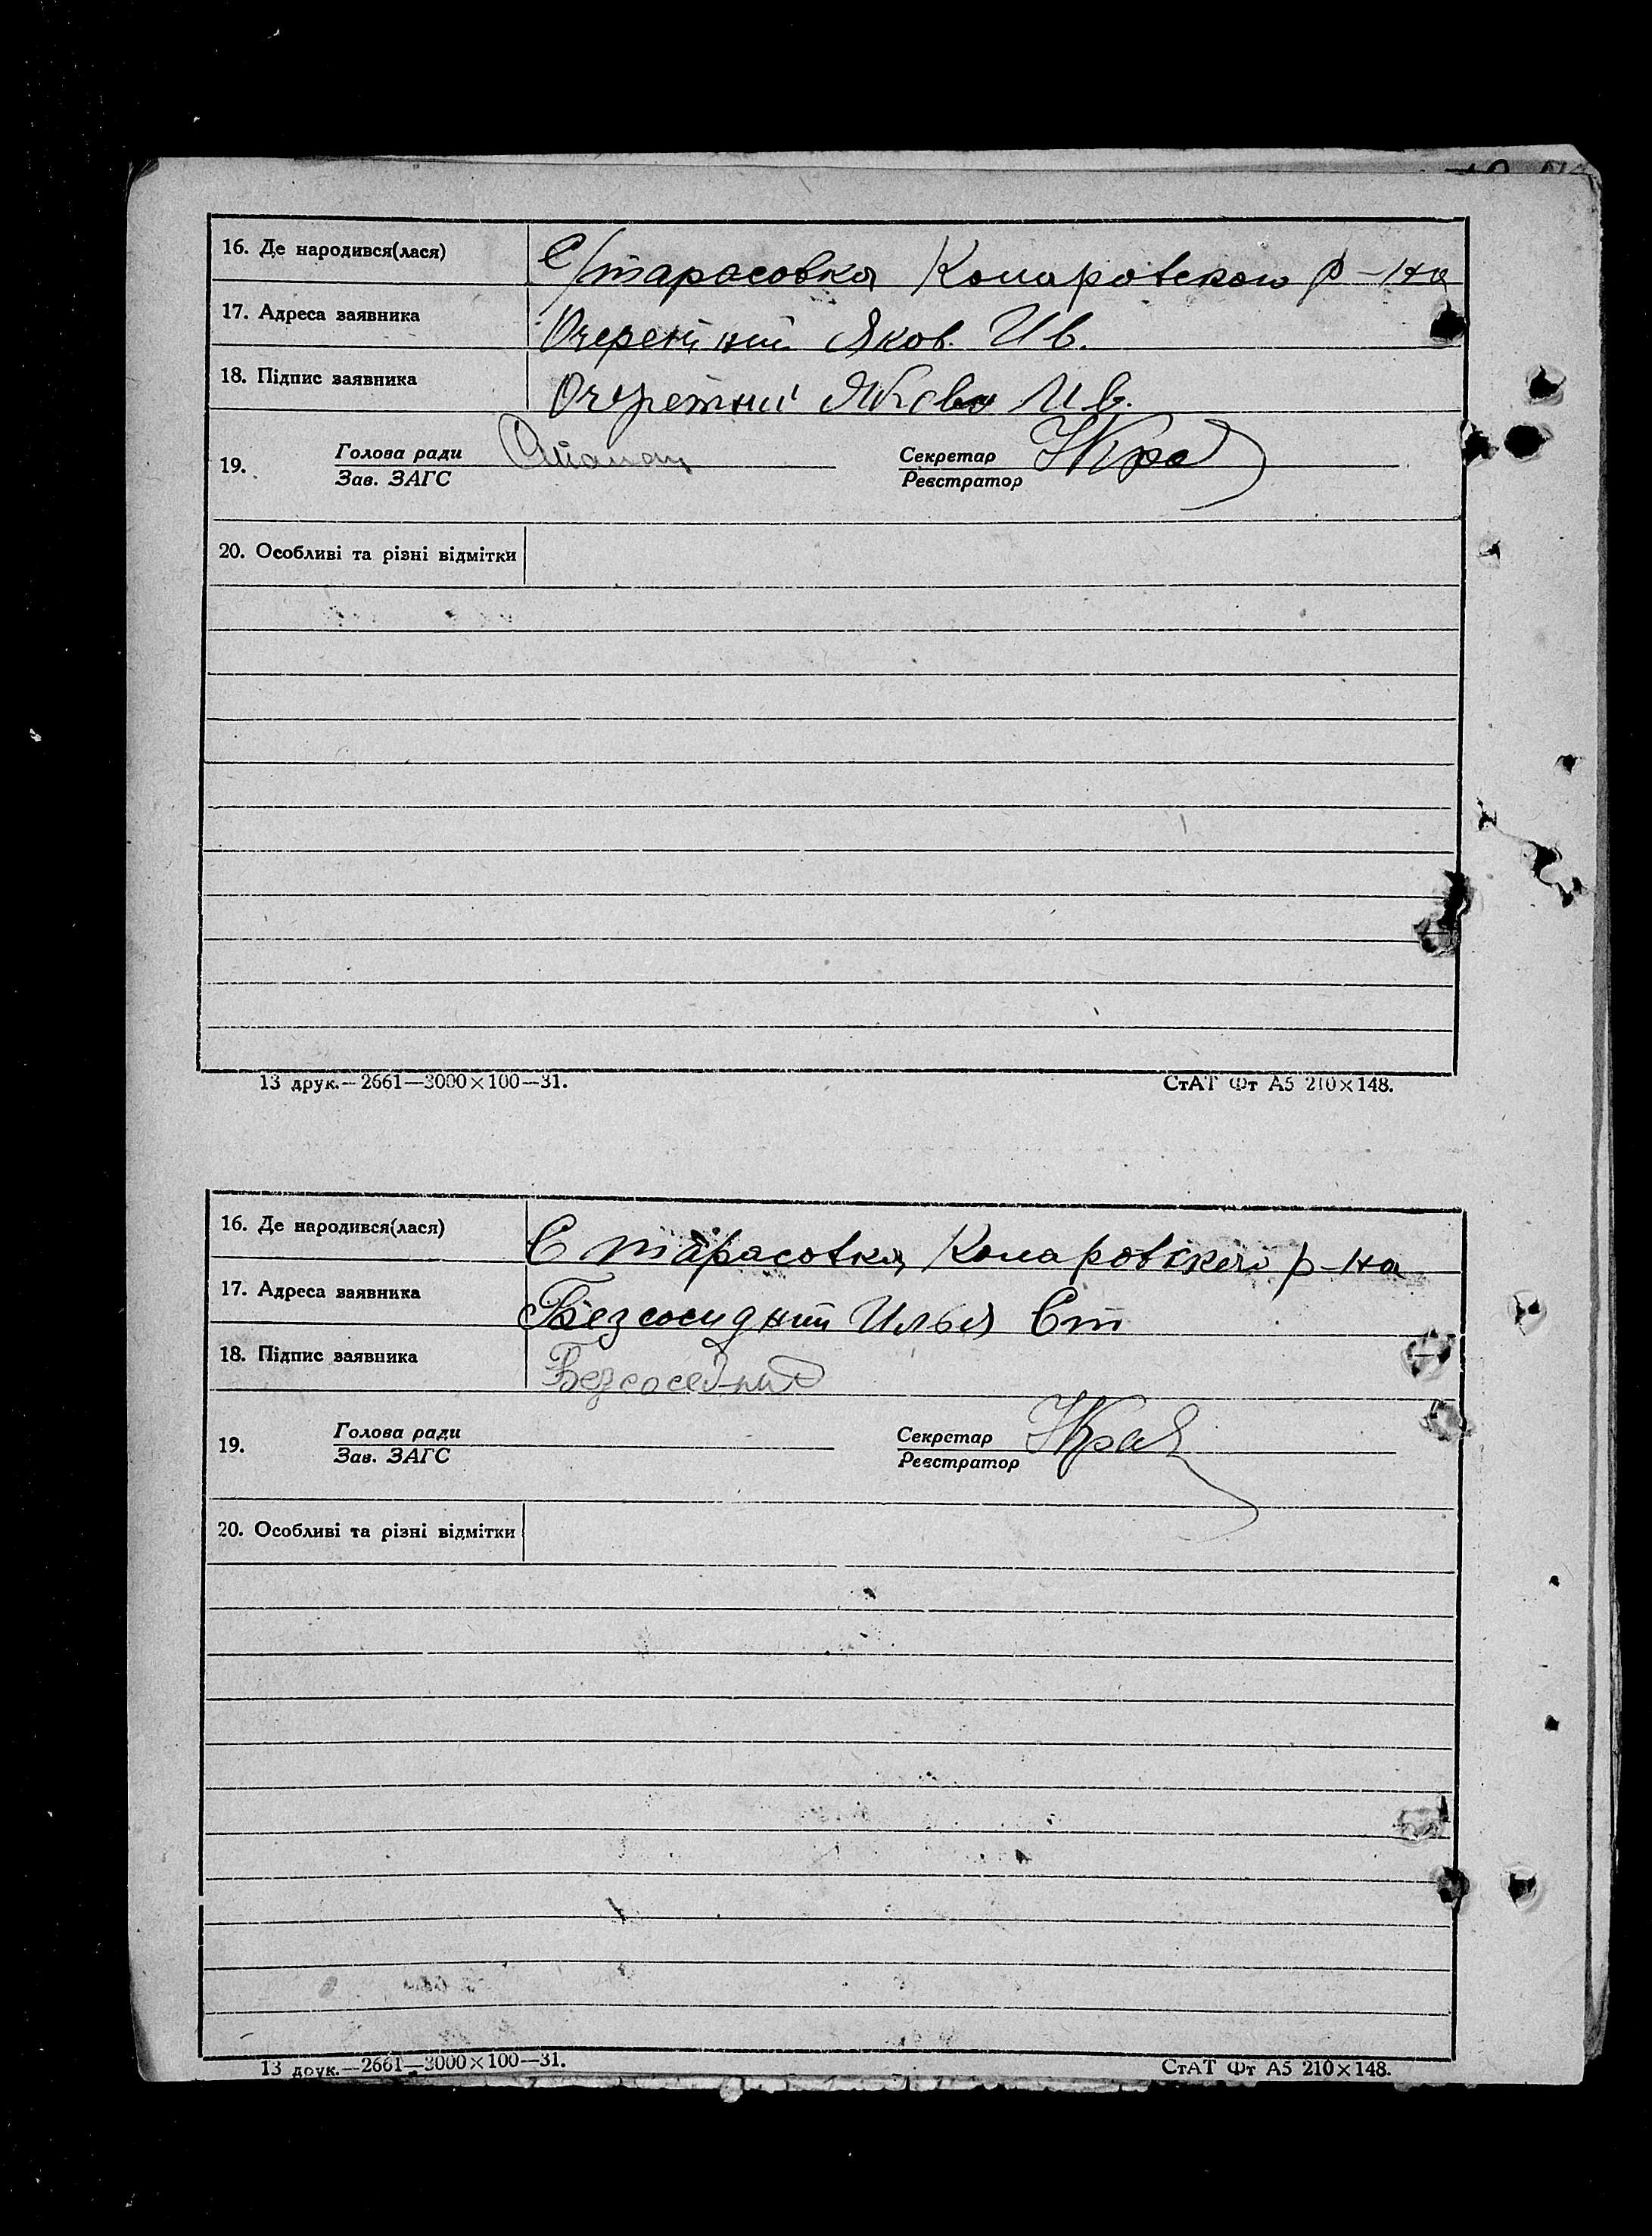 16. Де народився(лася) С/тарасовка Комаровского р-на
17. Адреса заявника Очеретний Яков. Ив.
18. Підпис заявника Очеретний Яков Ив.
19. Голова ради Секретар
Зав. ЗАГС Реєстратор
20. Особливі та різні відмітки
13 друк.—2661—3000×100—31. СтАТ Фт А5 210×148.
16. Де народився(лася) С тарасовка Комаровского р-на
17. Адреса заявника Безсосидний Илья Ст
18. Підпис заявника Безсоседний
19. Голова ради Секретар
Зав. ЗАГС Реєстратор
20. Особливі та різні відмітки
13 друк.—2661—3000×100—31. СтАТ Фт А5 210×148.